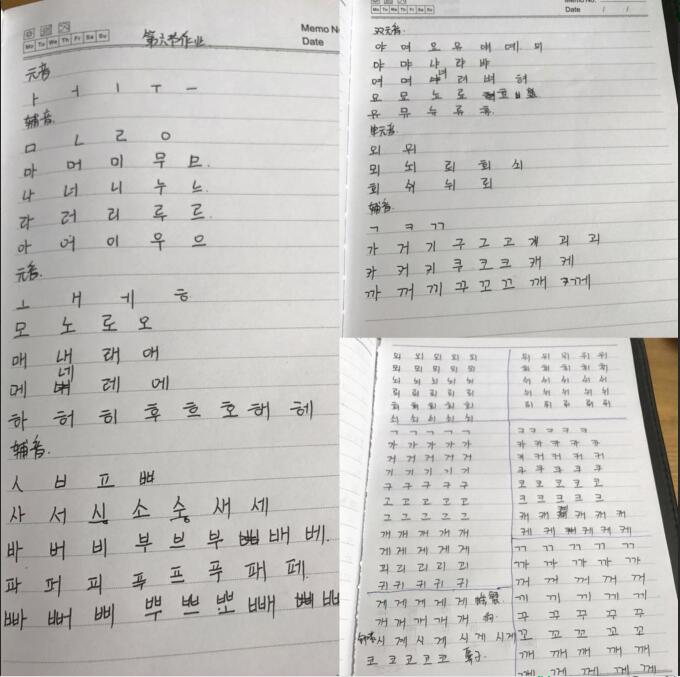 Mo Tu We Th Fr Sa Su
Memo No
Date
第六节作业
元音
ㅏ ㅓ ㅣ ㅜ ㅡ
辅音.
ㅁ ㄴ ㄹ ㅇ
마 머 미 무 므
나 너 니 누 느
라 러 리 루 르
아 어 이 우 으
元音
ㅗ ㅐ ㅔ ㅎ
모 노 로 오
매 내 래 애
네
메 레 에
하 허 히 후 흐 호 해 헤
辅音.
ㅅ ㅂ ㅍ ㅃ
사 서 싱 소 숭 새 세
바 버 비 부 브 부 배 베.
파 퍼 피 푸 프 푸 패 페
빠 뻐 삐 뿌 쁘 뽀 빼 빠
Memo No.
Mo Tu We Th Fr Sa Su
Date / /
双元音.
야 여 요 유 얘 예 의
야 먀 냐 랴 뱌
여 며 녀 려 벼 혀
요 묘 뇨 료 효
유 뮤 뉴 류
单元音.
외 위
뫼 뇌 뢰 회 쇠
휘 쉬 뉘 뤼
辅音.
ㄱ ㅋ ㄲ
가 거 기 구 그 고 개 괴 괴
카 커 키 쿠 코 크 캐 케
까 꺼 끼 꾸 꼬 끄 깨 께
뫼 뫼 뫼 뫼 뫼
뇌 뇌 뇌 뇌 뇌
뢰 뢰 뢰 뢰 뢰
회 회 회 회 회
쇠 쇠 쇠 쇠 쇠
ㄱ ㄱ ㄱ ㄱ ㄱ
가 가 가 가 가
거 거 거 거 거
기 기 기 기 기
구 구 구 구 구
고 고 고 고 고
그 그 그 그 그
개 개 개 개 개
게 게 게 게 게
괴 괴 괴 괴 괴
귀 귀 귀 귀 귀
게 게 게 게 게 螃蟹
개 개 개 개 개 狗
钟表 시계 시계 시계 시계
코 코 코 코 코 鼻子
위 위 위 위 위
휘 휘 휘 휘 휘
쉬 쉬 쉬 쉬 쉬
뉘 뉘 뉘 뉘 뉘
뤼 뤼 뤼 뤼 뤼
ㅋ ㅋ ㅋ ㅋ ㅋ
카 카 카 카 카
커 커 커 커 커
쿠 쿠 쿠 쿠 쿠
코 코 코 코 코
크 크 크 크 크
캐 캐 캐 캐 캐
케 케 케 케 케
ㄲ ㄲ ㄲ ㄲ ㄲ
까 까 까 까 까
꺼 꺼 꺼 꺼 꺼
끼 끼 끼 끼 끼
꾸 꾸 꾸 꾸 꾸
꼬 꼬 꼬 꼬 꼬
깨 깨 깨 깨 깨
께 께 께 께 께